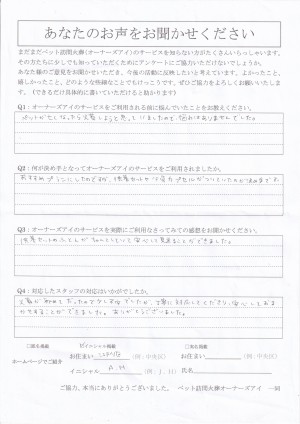 あなたのお声をお聞かせください
まだまだペット訪問火葬(オーナーズアイ)のサービスを知らない方がたくさんいらっしゃいます。
その方たちに少しでも知っていただくためにアンケートにご協力いただけないでしょうか。
あなた様のご意見をお聞かせいただき、今後の活動に反映したいと考えています。よかったこと、
嬉しかったこと、どのような些細なことでもけっこうです。ぜひご協力をよろしくお願いいたします。
(できるだけ具体的に書いていただけると助かります)
Q1:オーナーズアイのサービスをご利用される前に悩んでいたことをお教えください。
ペットが亡くなったら火葬しようと思っていましたので、悩みはありませんでした。
Q2:何が決め手となってオーナーズアイのサービスをご利用されましたか。
おすすめプランにしたのですが、
Q3:オーナーズアイのサービスを実際にご利用なさってみての感想をお聞かせください。
安心して見送ることができました。
Q4:対応したスタッフの対応はいかがでしたか。
火葬が初めてだったので少し不安でしたが、丁寧に対応してくださり、安心しておま
かせすることができました。ありがとうございました。
□匿名掲載
イニシャル掲載
□実名掲載
ホームページでご紹介
お住まい
(例:中央区)
お住まい
(例:中央区)
イニシャル
(例:J.H)
氏名
ご協力、本当にありがとうございました。 ペット訪問火葬オーナーズアイ 一同